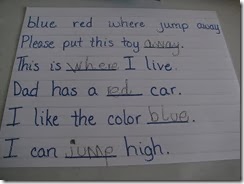 blue red where jump away
Please put this toy away.
This is where I live.
Dad has a red car.
I like the color blue.
I can jump high.